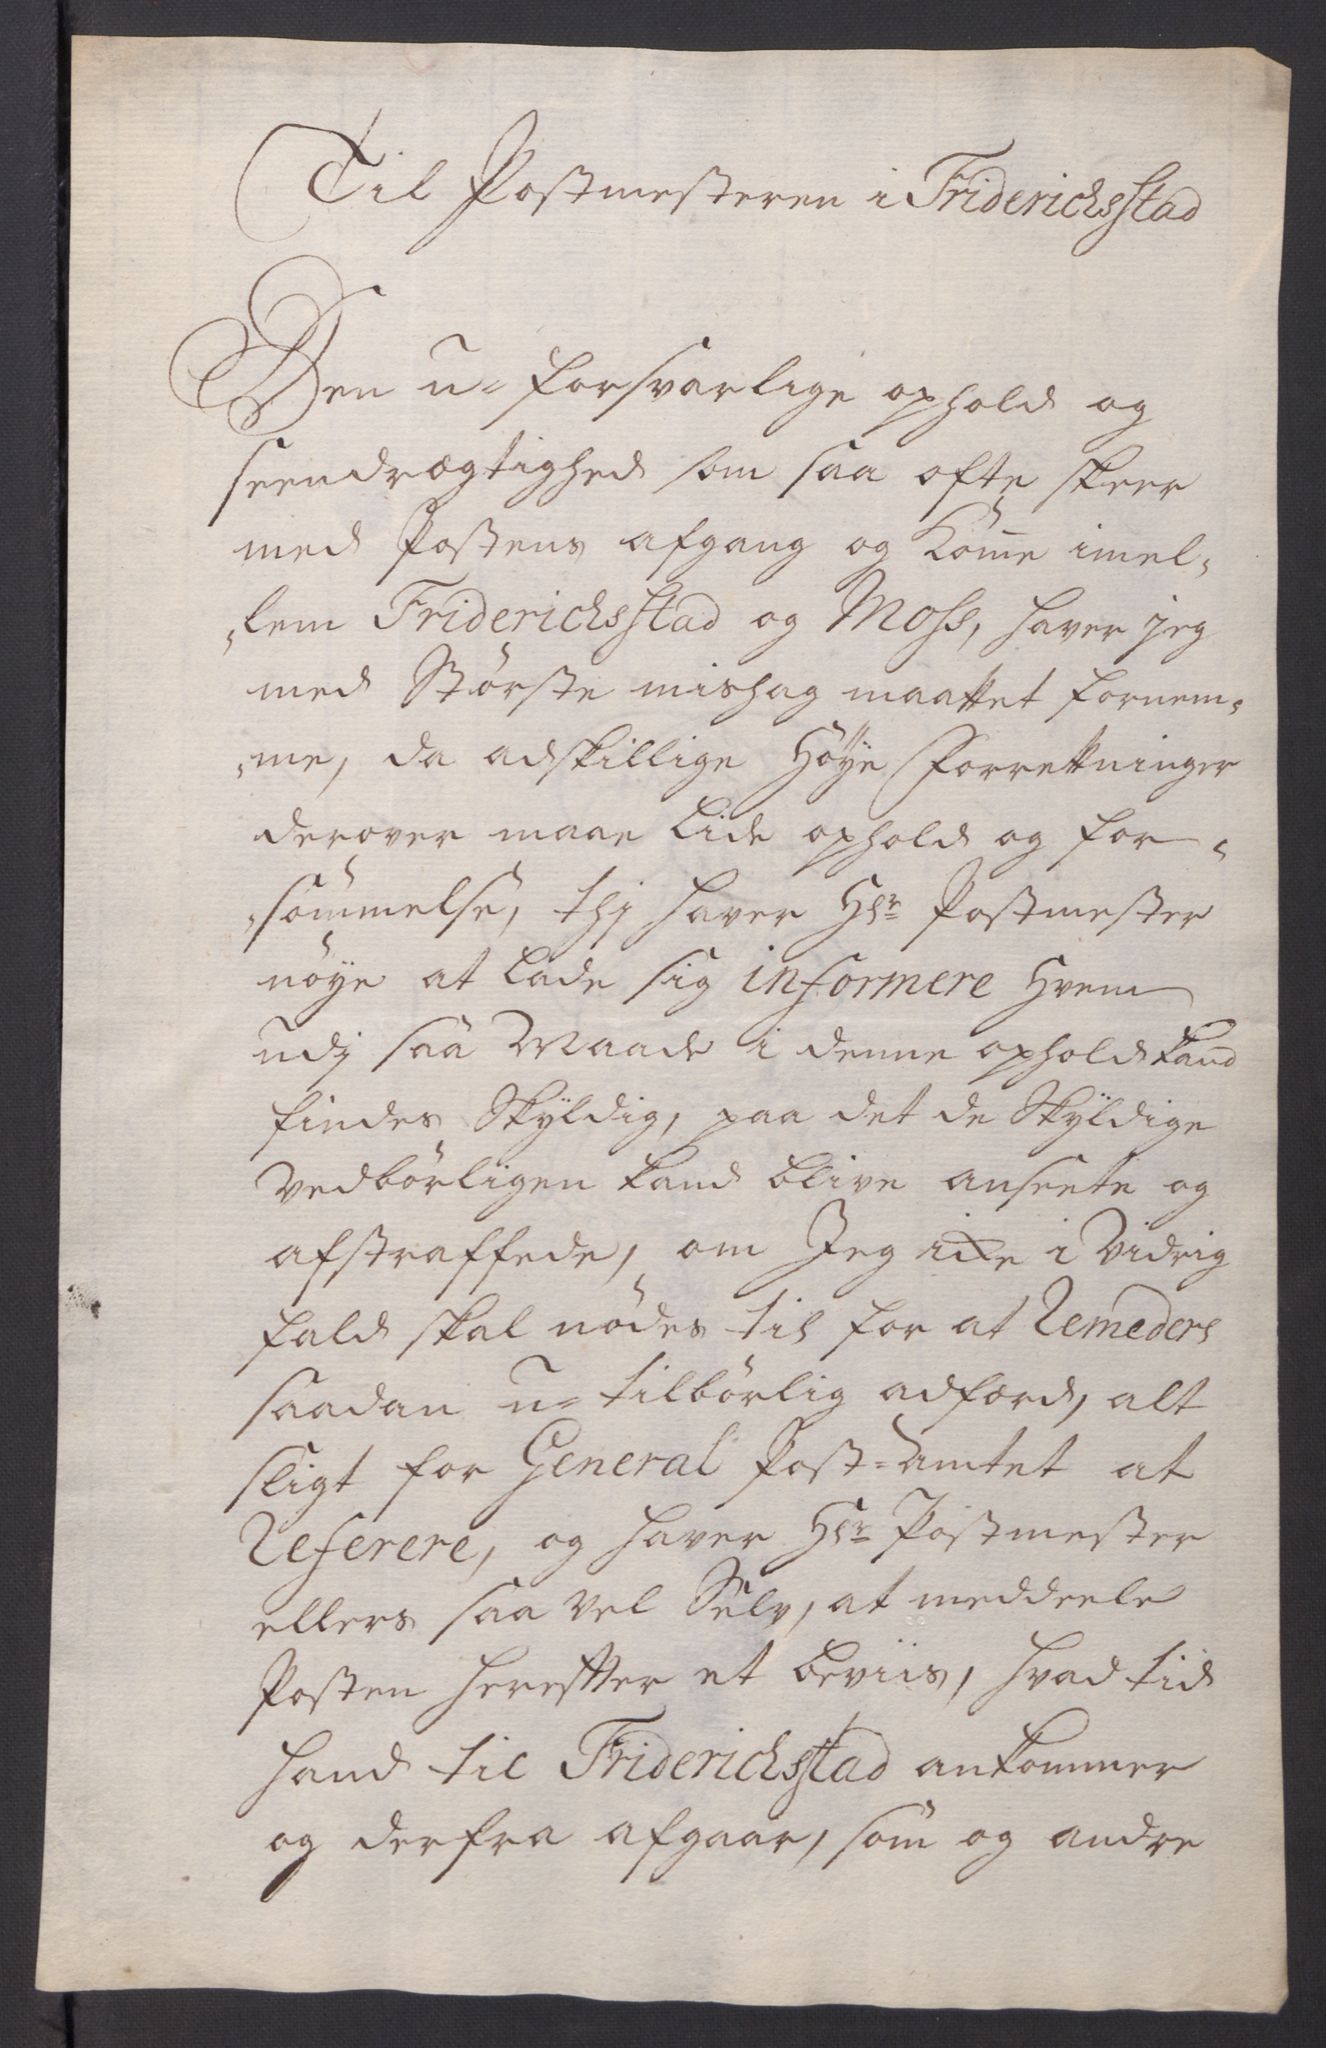 Til Postmesteren i Friderichsstad
Den u-forsvarlige ophold og
seendrægtighed som saa ofte skeer
med Postens afgang og Kom̄e imel-
-lem Friderichsstad og Moss, haver jeg
med Største mishag maattet fornem-
-me, da adskillige Høye Forrettninger
derover maae Lide ophold og for-
-sømmelse, thj haver Hr. Postmester
nøye at Lade sig informere Hvem
udj saa Maade i denne ophold kand
findes Skyldig, paa det de Skyldige
Vedbørligen kand blive anseete og
afstraffede, om Jeg icke i Vidrig
fald skal nødes til for at Remedere
saadan u-tilbørlig adfærd, alt
sligt for General Post-Amtet at
Referere, og haver Hr. Postmester
ellers saa vel Selv, at meddeele
Posten herefter et beviis, hvad tid
hand til Friderichstad ankommer
og derfra afgaar, som og andre